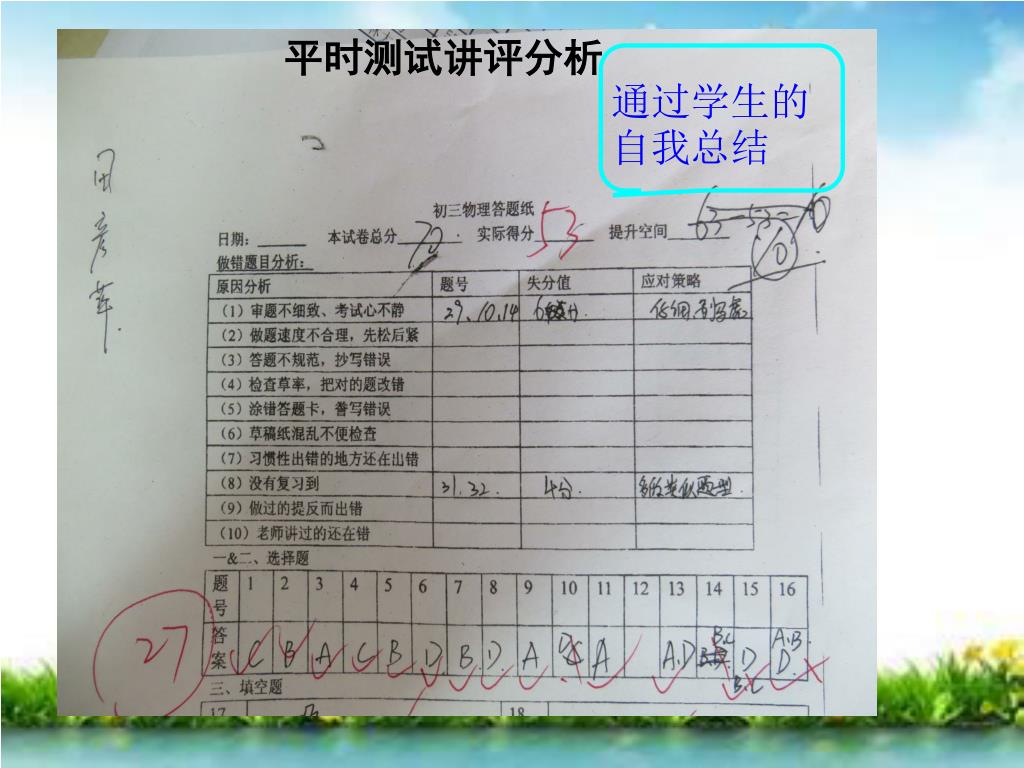 平时测试讲评分析
通过学生的
自我总结
初三物理答题纸
日期: 本试卷总分 70 实际得分 53 提升空间
63-53=10
10
做错题目分析:
原因分析 题号 失分值 应对策略
(1) 审题不细致、考试心不静 29、10、14 6分.
(2) 做题速度不合理,先松后紧
(3) 答题不规范,抄写错误
(4) 检查草率,把对的题改错
(5) 涂错答题卡,誊写错误
(6) 草稿纸混乱不便检查
(7) 习惯性出错的地方还在出错
(8) 没有复习到 31. 32. 4分. 多做类似题型.
(9) 做过的提反而出错
(10) 老师讲过的还在错
一&二、选择题
题号 1 2 3 4 5 6 7 8 9 10 11 12 13 14 15 16
答案 C B A C B D B D A C A A.D B.C D A.B.
D.
B.C
27
三、填空题
17 18